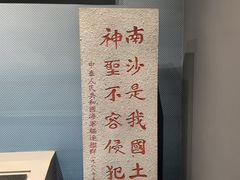 南沙是我國土
神聖不容侵犯
中華人民共和國海軍